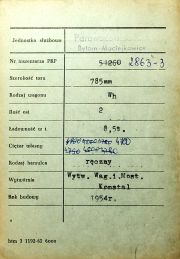 Jednostka służbowa
Bytom-Maciejkowice
Nr inwentarza PKP 51260 2863-3
Szerokość toru 785mm
Rodzaj wagonu Wh
Ilość osi 2
Ładowność w t. 8,5t.
Ciężar własny 4700
Rodzaj hamulca ręczny
Wytwórnia Wytw. Wag.i.Most.
Konstal
Rok budowy 1954r.
htm 3 1192-62 6000